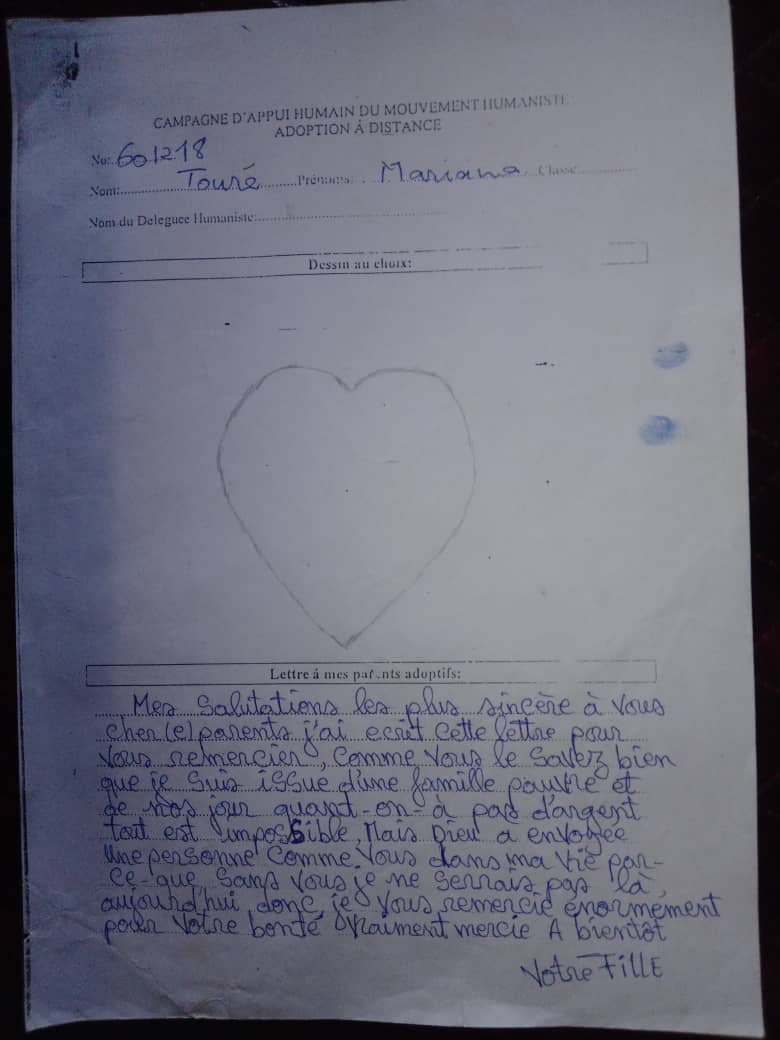 CAMPAGNE D'APPUI HUMAIN DU MOUVEMENT HUMANISTE
ADOPTION Á DISTANCE
No: 601218
Nom: Touré Prénoms: Mariama Classe:
Nom du Deleguee Humaniste:
Dessin au choix:
Lettre á mes parents adoptifs:
Mes Salutations les plus sincère à vous
cher(e) parents j'ai ecrit cette lettre pour
vous remercier, comme vous le savez bien
que je suis issue d'une famille pauvre et
de nos jour quant-on-à pas d'argent
tout est impossible, Mais Dieu a envoyée
une personne comme vous dans ma vie par-
ce-que sans vous je ne serrais pas là
aujourd'hui donc je vous remercie énormement
pour votre bonté vraiment mercie A bientôt
Votre FILLE